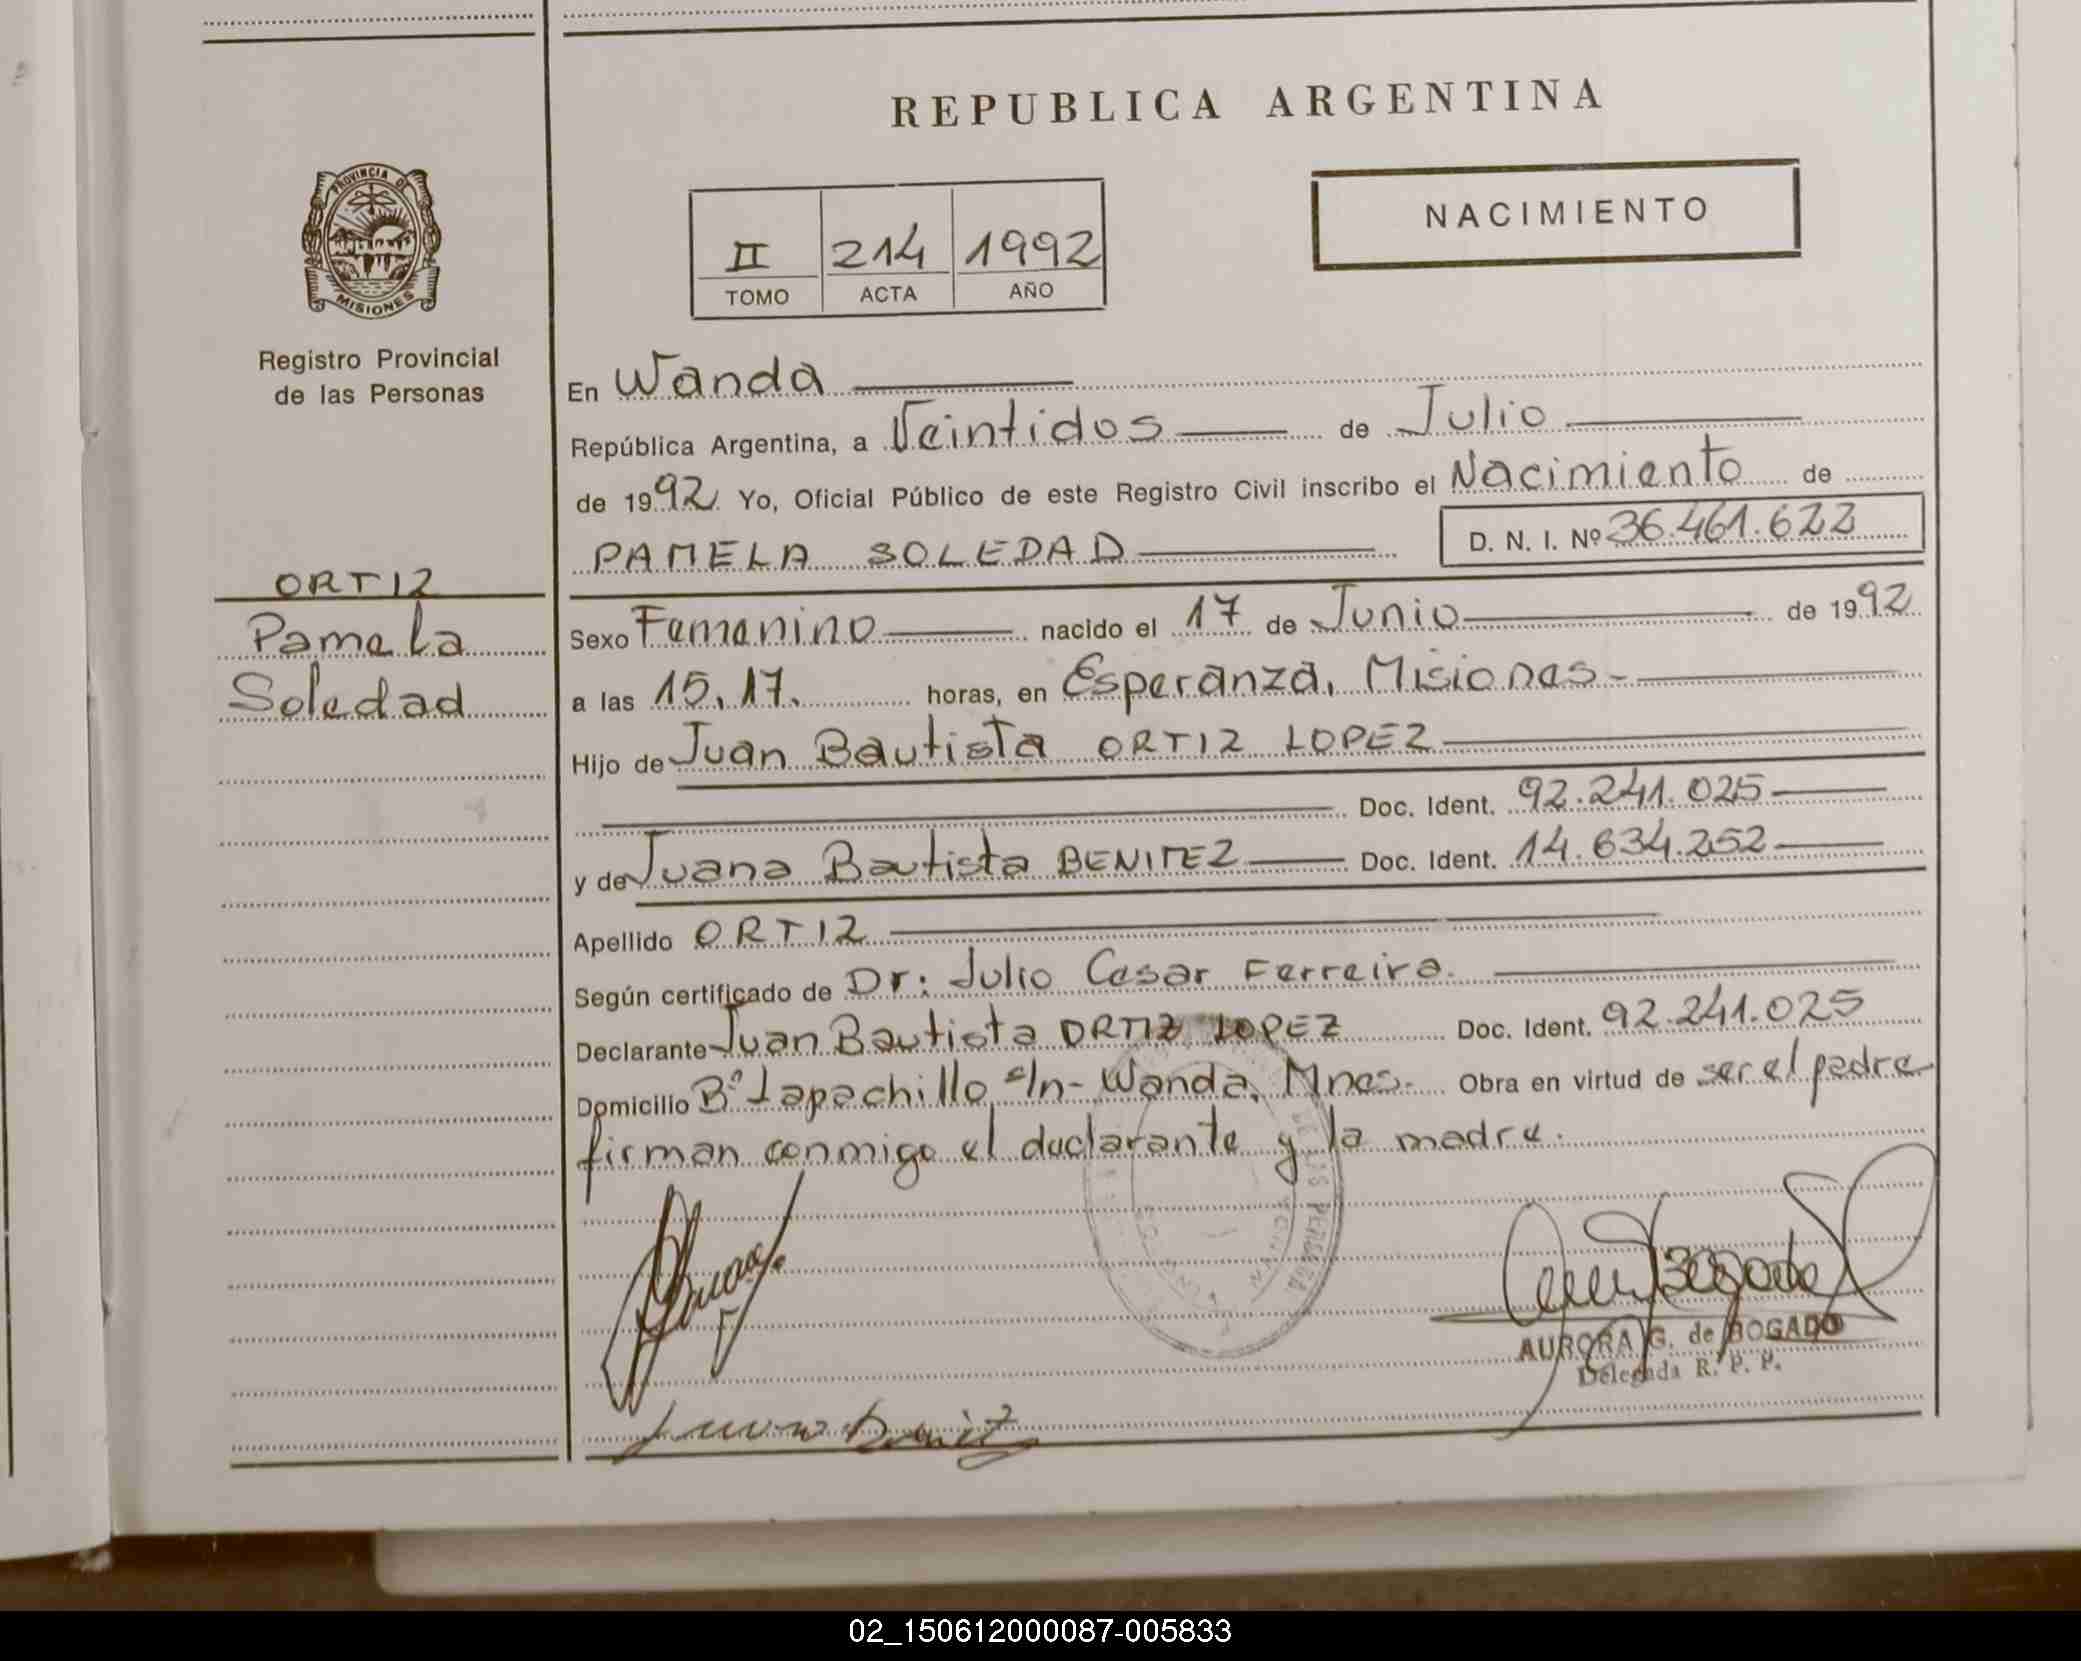 REPUBLICA ARGENTINA
PROVINCIA DE
MISIONES
Registro Provincial
de las Personas
NACIMIENTO
II 214 1992
TOMO ACTA AÑO
En Wanda
República Argentina, a Veintidos de Julio
de 1992 Yo, Oficial Público de este Registro Civil inscribo el Nacimiento de
PAMELA SOLEDAD D. N. I. Nº 36.461.622
ORTIZ
Pamela
Soledad
Sexo Femenino nacido el 17 de Junio de 1992
a las 15,17. horas, en Esperanza, Misiones-
Hijo de Juan Bautista ORTIZ LOPEZ
Doc. Ident. 92.241.025
y de Juana Bautista BENITEZ Doc. Ident. 14.634.252
Apellido ORTIZ
Según certificado de Dr: Julio Cesar Ferreira.
Declarante Juan Bautista ORTIZ LOPEZ Doc. Ident. 92.241.025
Domicilio Bº Lapachillo s/n- Wanda, Mnes- Obra en virtud de ser el padre
firman conmigo el declarante y la madre.
AURORA G. de BOGADO
Delegada R. P. P.
02_150612000087-005833